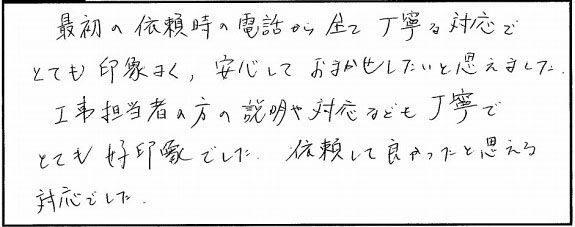 最初の依頼時の電話から全て丁寧な対応で
とても印象よく，安心しておまかせしたいと思えました．
工事担当者の方の説明や対応なども丁寧で
とても好印象でした．依頼して良かったと思える
対応でした．